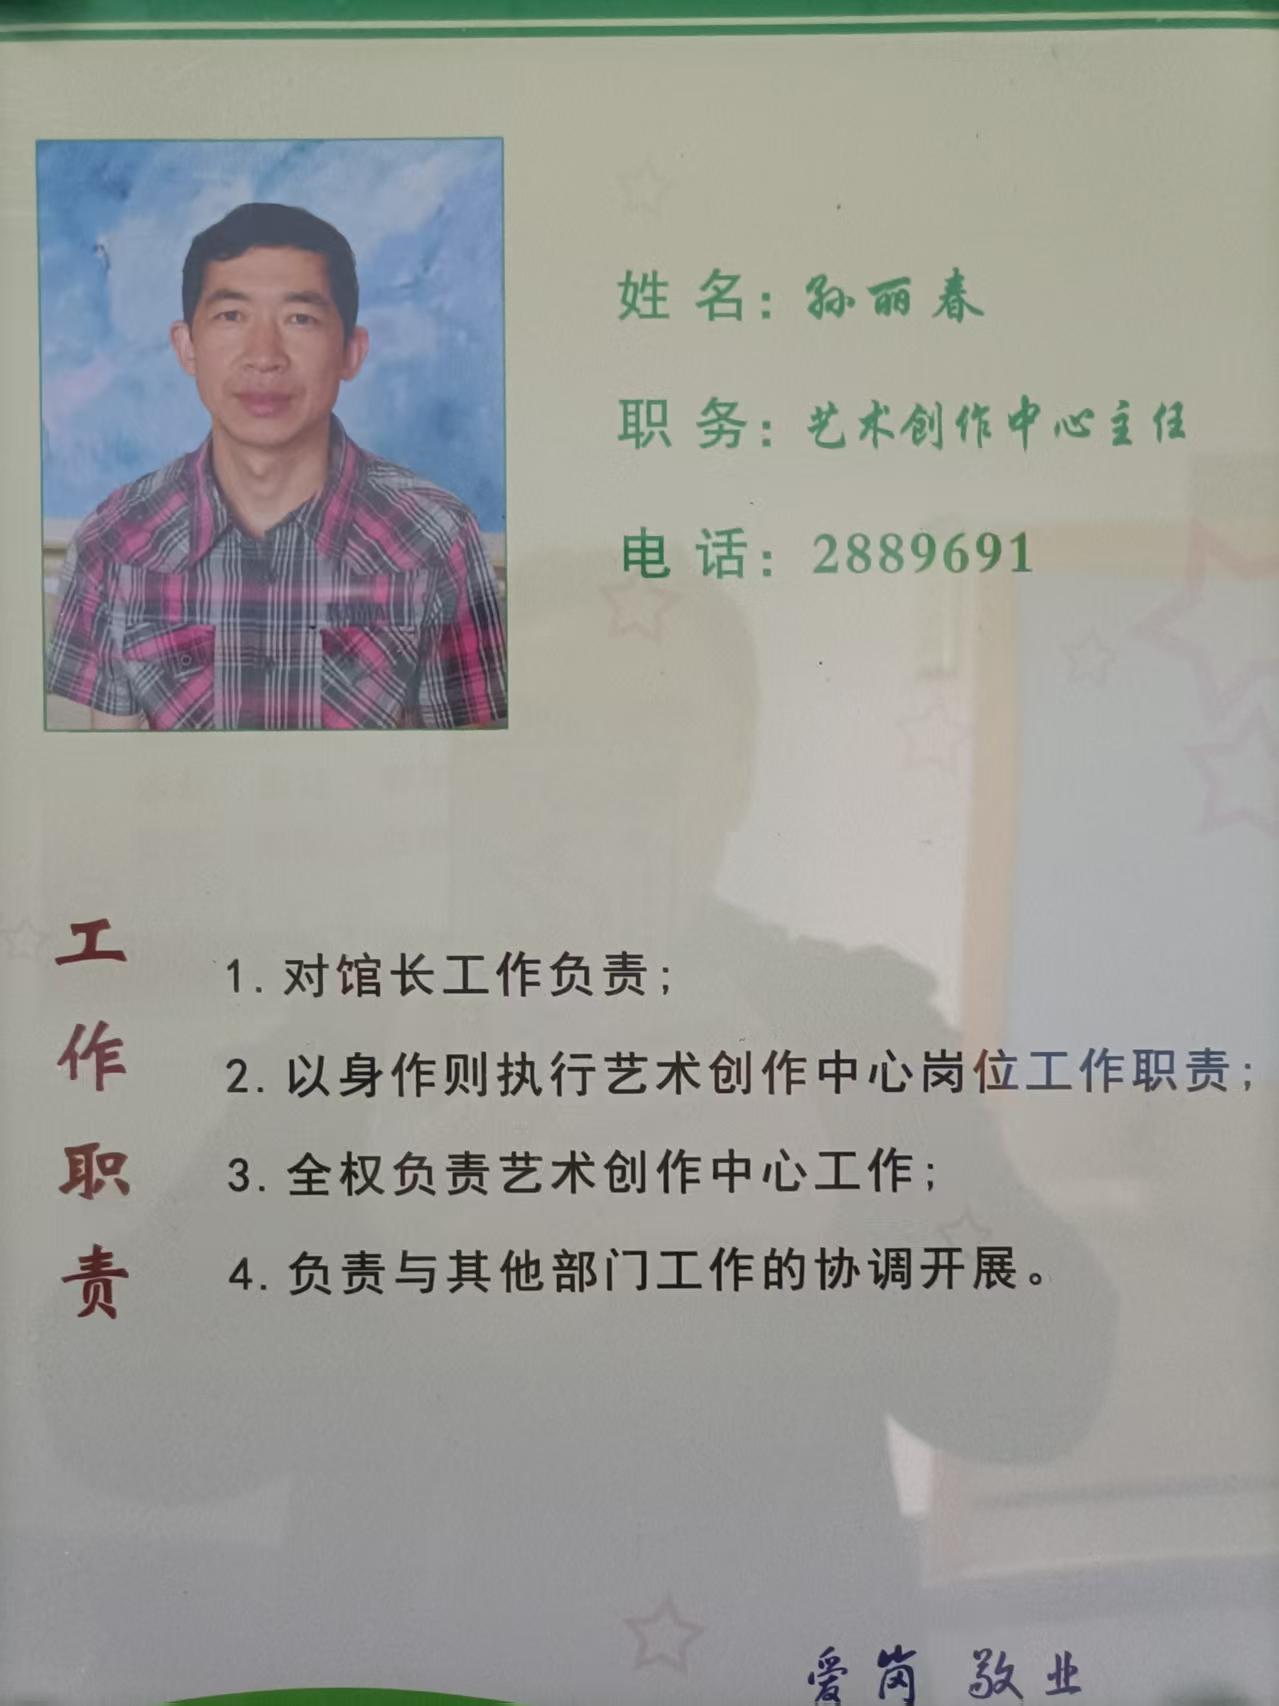 姓 名：孙丽春
职 务：艺术创作中心主任
电 话：2889691
工作职责
1.对馆长工作负责；
2.以身作则执行艺术创作中心岗位工作职责；
3.全权负责艺术创作中心工作；
4.负责与其他部门工作的协调开展。
爱岗 敬业